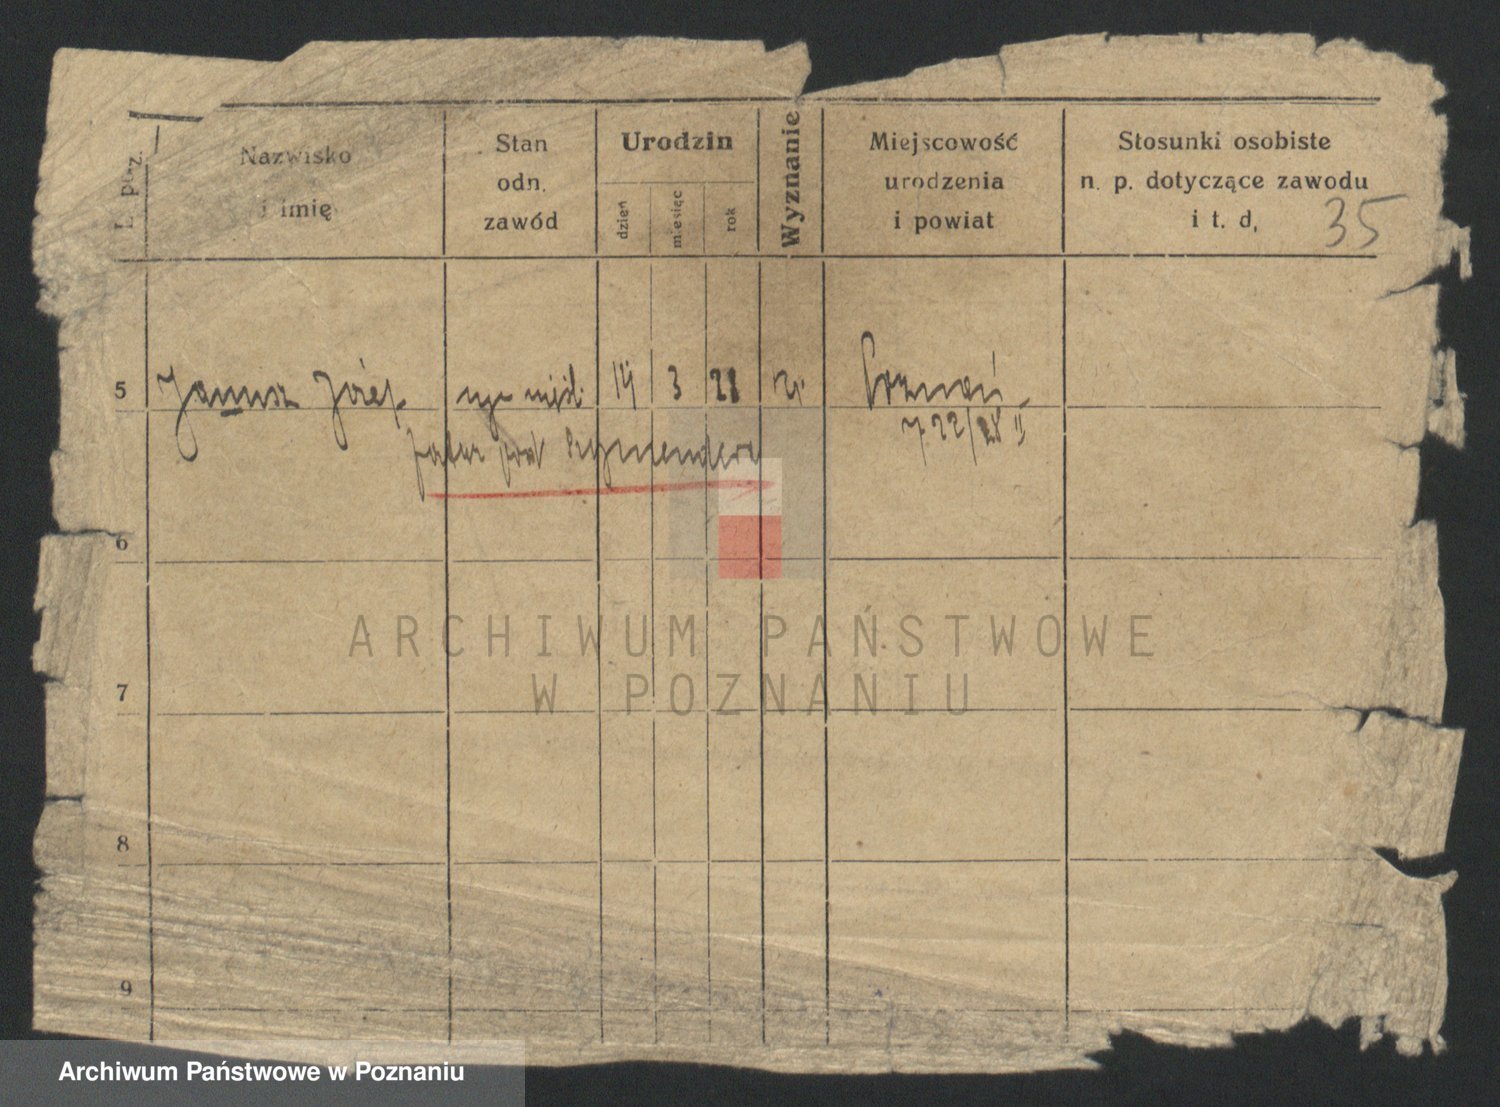 L. poz.
Nazwisko
i imię
Stan
odn.
zawód
Urodzin
dzień
miesiąc
rok
Wyznanie
Miejscowość
urodzenia
i powiat
Stosunki osobiste
n. p. dotyczące zawodu
i t. d.
35
5 Janusz Józef 3 21 Poznań
7 22/
6
ARCHIWUM PAŃSTWOWE
W POZNANIU
7
8
9
Archiwum Państwowe w Poznaniu